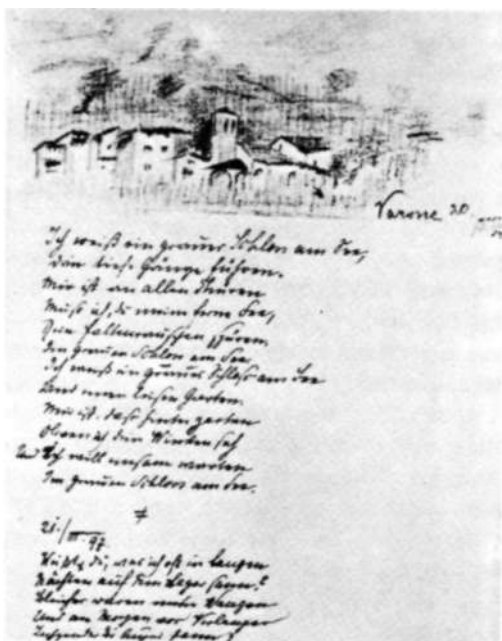 Varone 20.
Ich weiß ein graues Schloss am See,
tiefe Gänge führen.
Mir ist an allen Thüren
Muß ich, du meine ferne Fee,
Dein Faltenrauschen spüren
Im grauen Schloss am See.
Ich weiß ein graues Schloss am See
Und einen leisen Garten.
Mir ist, daß hinter zarten
ich dein Winken seh
Und ich will einsam warten
Im grauen Schloss am See.
21./III 97.
Weißt du, was ich oft in langen
Nächten auf dem Lager sann?
Bleicher waren meine Wangen
Und am Morgen vor Verlangen